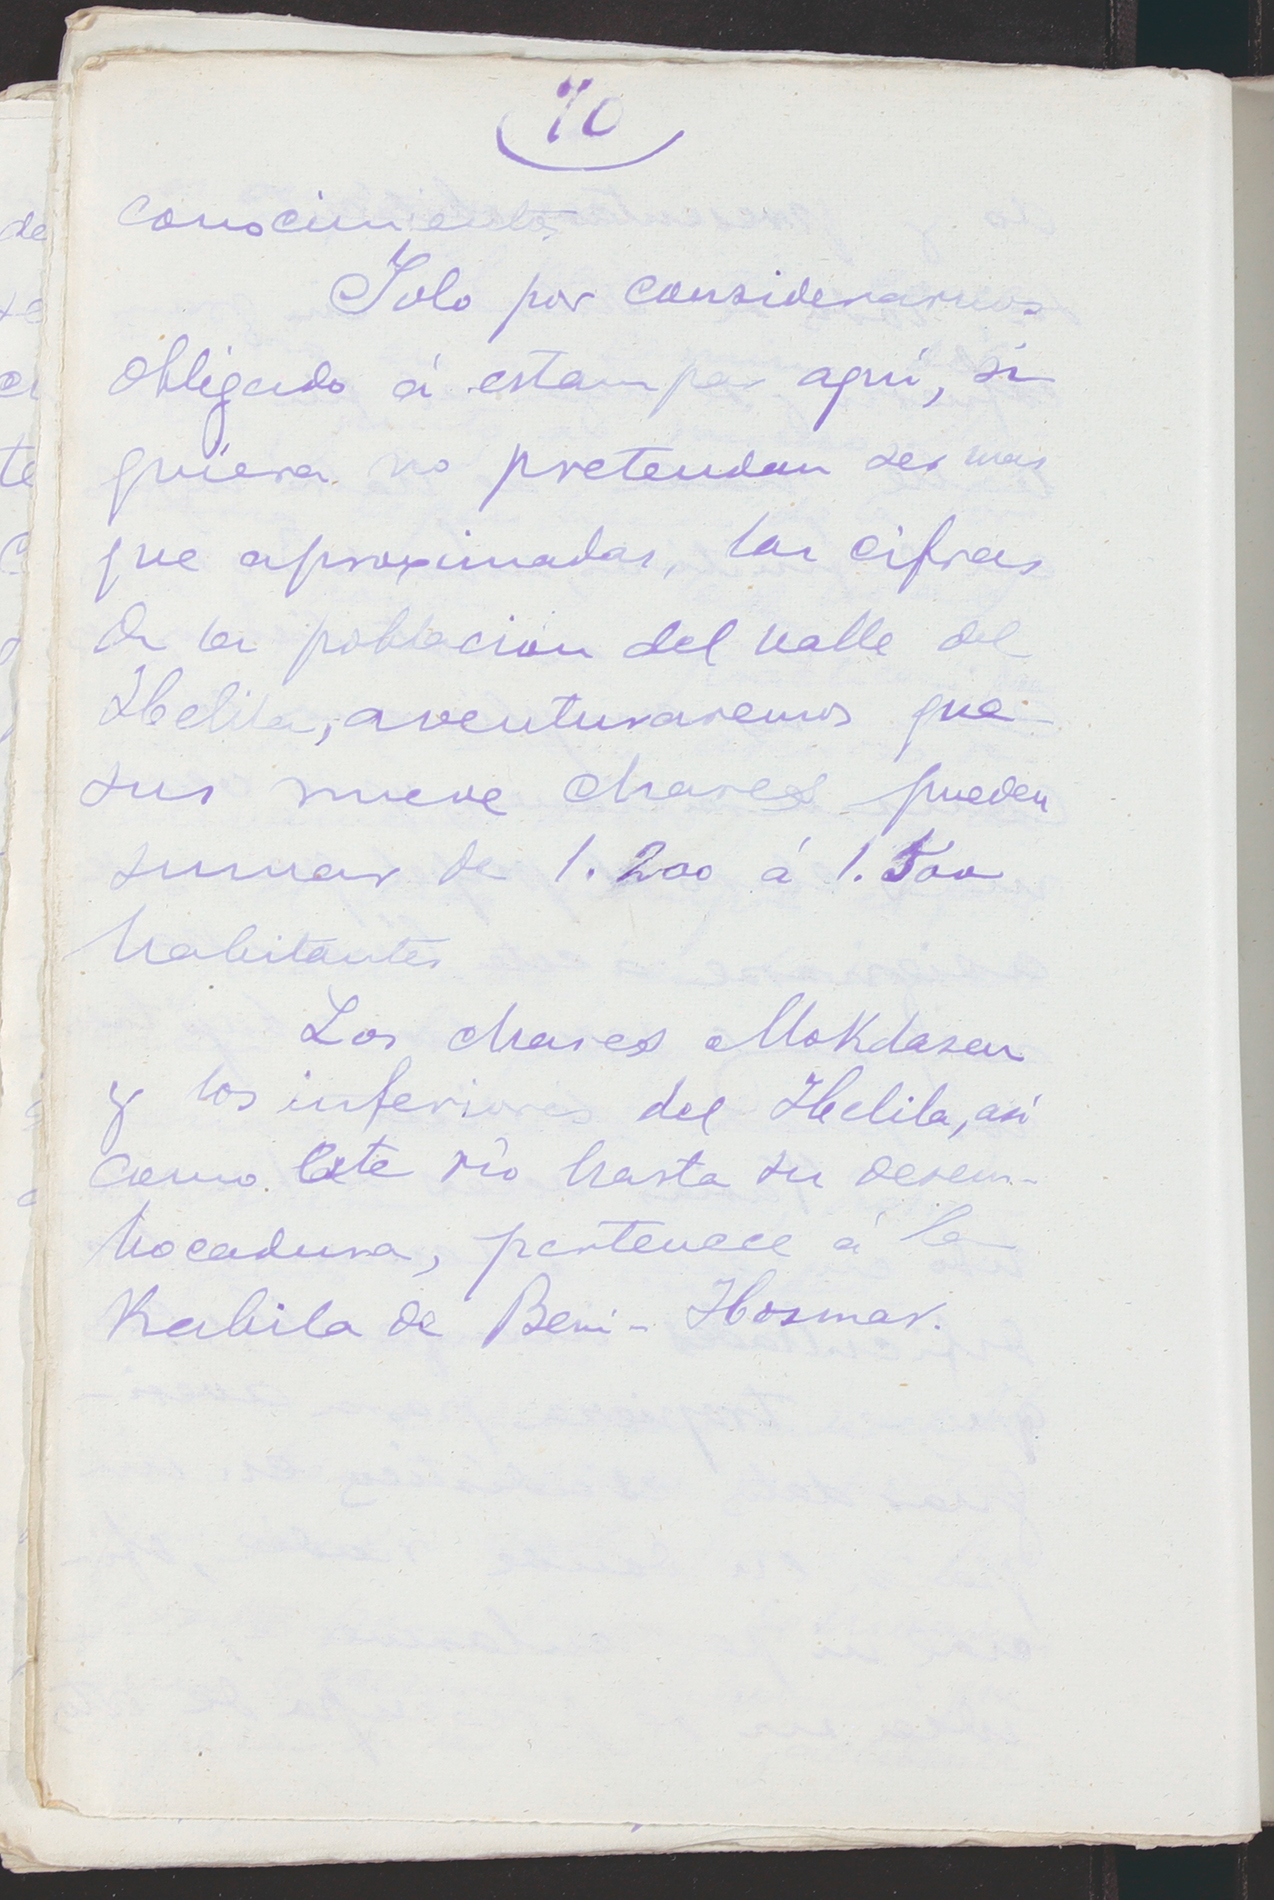 70
conocimiento.
Solo por considerarnos
obligado á estampar aquí, si
quiera no pretendan ser mas
que aproximadas, las cifras
de la poblacion del valle del
Hbelila, aventuraremos que
sus nueve chares pueden
sumar de 1.200 á 1.500
habitantes
Los chares Mokdasen
y los inferiores del Hbelila, asi
como este río hasta su desem-
bocadura, pertenece á la
Kabila de Beni-Hosmar.